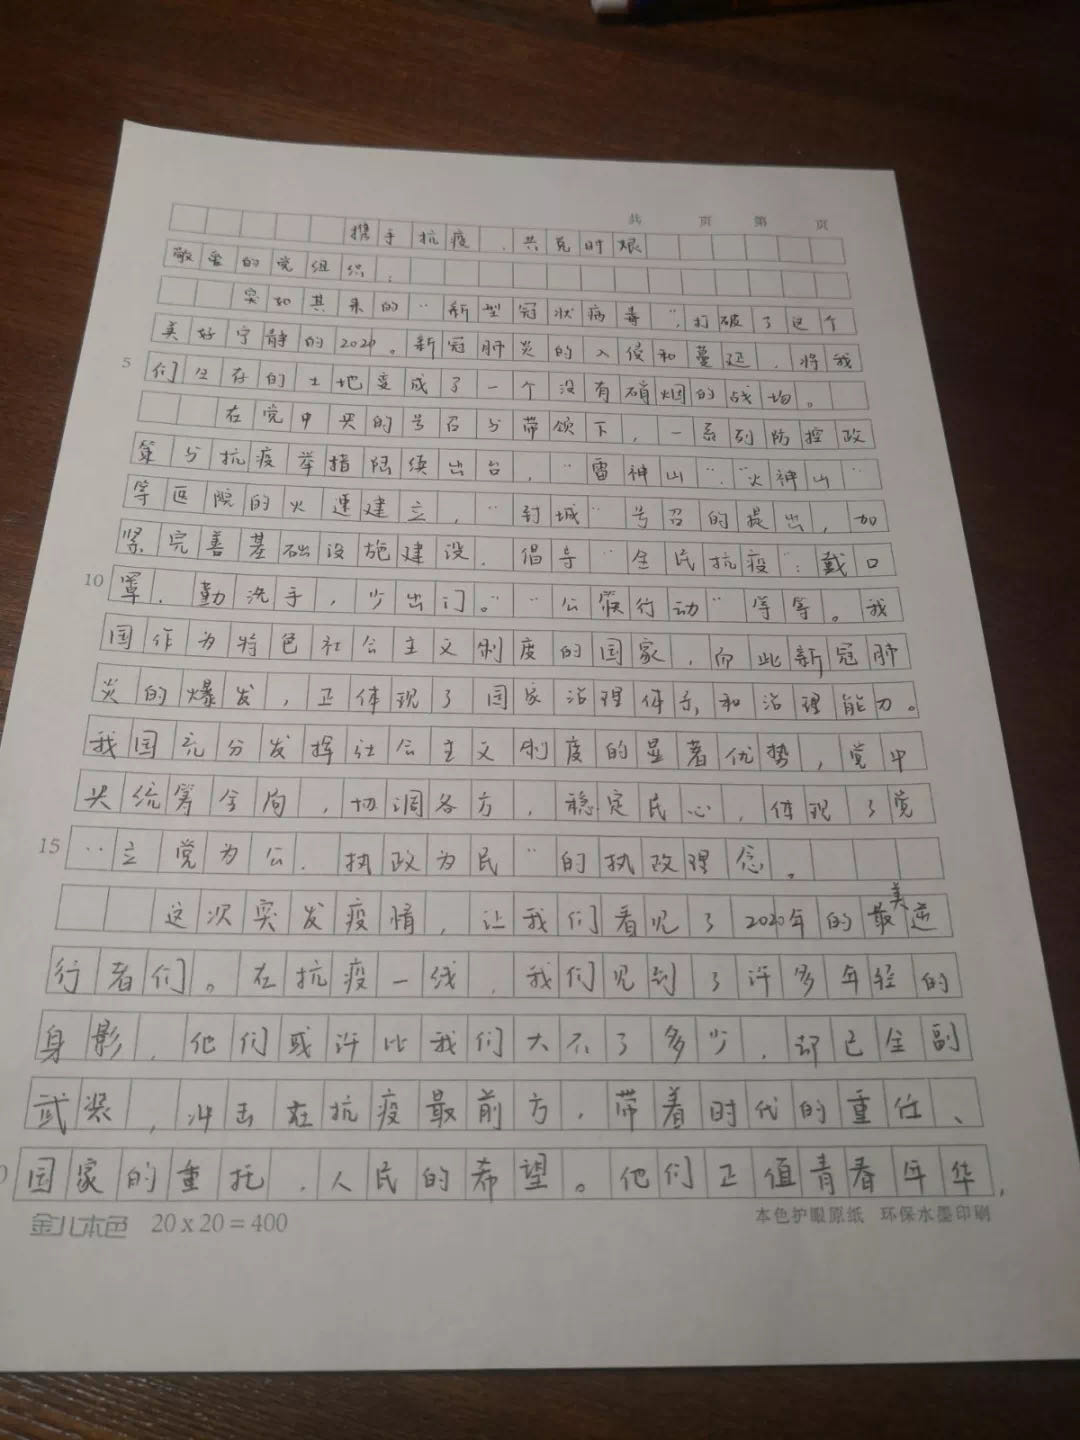 共 页 第 页
携手抗疫、共克时艰
敬爱的党组织：
突如其来的“新型冠状病毒”，打破了这个
美好宁静的2020。新冠肺炎的入侵和蔓延，将我
5 们生存的土地变成了一个没有硝烟的战场。
在党中央的号召与带领下，一系列防控政
策与抗疫举措陆续出台，“雷神山”、“火神山”
等医院的火速建立，“封城”号召的提出，加
紧完善基础设施建设、倡导“全民抗疫”：戴口
10 罩、勤洗手，少出门。“公筷行动”等等。我
国作为特色社会主义制度的国家，而此新冠肺
炎的爆发，正体现了国家治理体系和治理能力。
我国充分发挥社会主义制度的显著优势，党中
央统筹全局，协调各方，稳定民心，体现了党
15 “立党为公、执政为民”的执政理念。
这次突发疫情，让我们看见了2020年的最美逆
行者们。在抗疫一线，我们见到了许多年轻的
身影，他们或许比我们大不了多少，却已全副
武装，冲击在抗疫最前方，带着时代的重任、
国家的重托、人民的希望。他们正值青春年华，
金儿本色 20 x 20 = 400 本色护眼原纸 环保水墨印刷